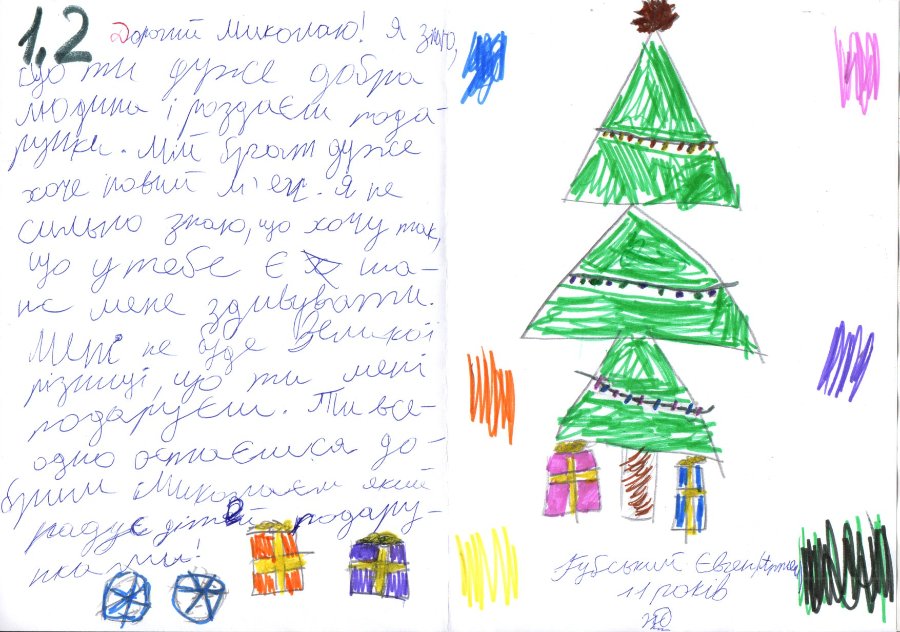 1,2 Дорогий Миколаю! Я знаю,
що ти дуже добра
людина і роздаєш пода-
рунки. Мій брат дуже
хоче новий м'яч. Я не
сильно знаю, що хочу так,
що у тебе є ша-
нс мене здивувати.
Мені не буде великої
різниці, що ти мені
подаруєш. Ти все-
одно остаєшся до-
брим Миколаєм який
радує дітей подару-
нками!
Кубський Євген
11 років